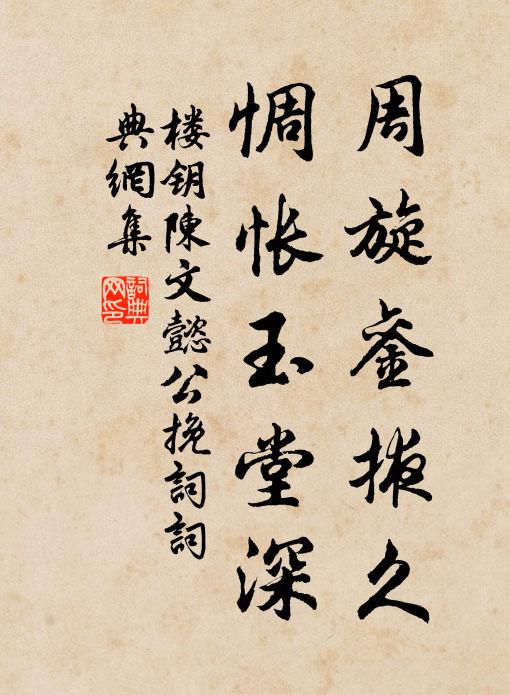 周旋銮掖久
惆怅玉堂深
楼钥陳文懿公挽詞詞
典網集
詞典
网印